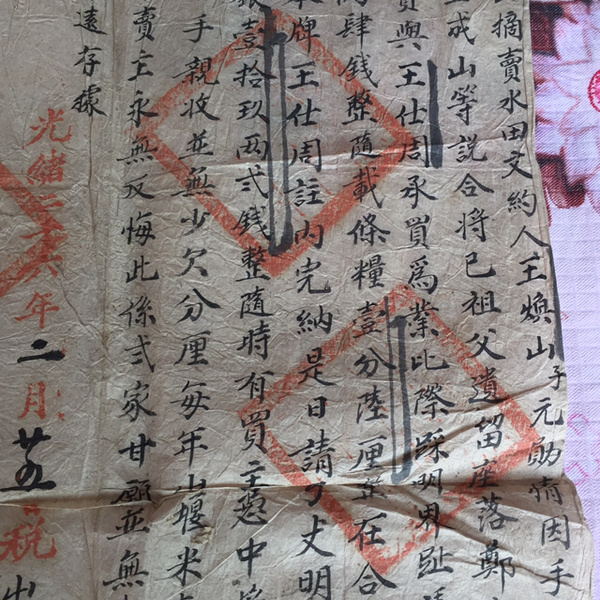 摘賣水田文約人王煥山子元勛情因手
成山等說合將已祖父遺留座落鄭
賣與王仕周承買為業比際踩明界趾
肆錢整隨載條糧壹分陸厘整在合
牌王仕周註內完納是日請丈明
壹拾玖兩弍錢整隨時有買主憑中
手親收並無少欠分厘每年山堰米
賣主永無反悔此係弍家甘願並無
遠存據
光緒二十六年二月廿五
税